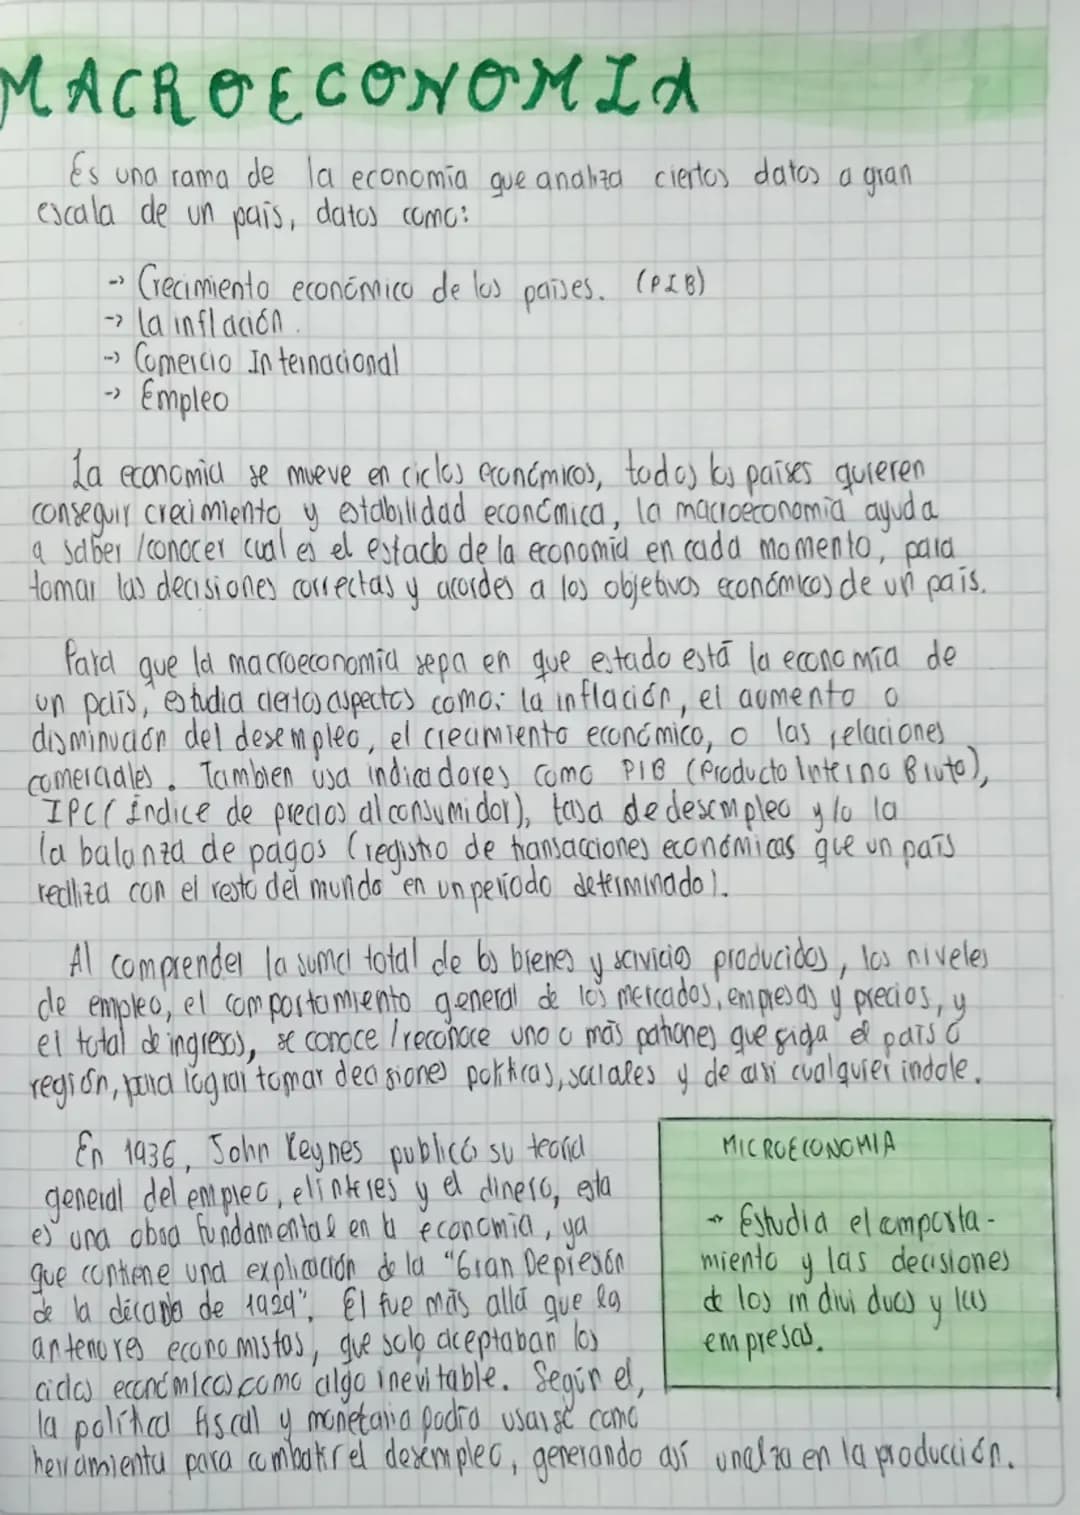 MACROECONOMIA
Es una rama de la economía que analiza ciertos datos a gran
escala de un país, datos como:
-> Crecimiento económico de los países. (PIB)
-> La inflación.
-> Comercio Internacional
-> Empleo
La economia se mueve en ciclos económicos, todos los países quieren
conseguir crecimiento y estabilidad económica, la macroeconomia ayuda
a saber /conocer cual es el estado de la economia en cada momento, para
tomar las decisiones correctas y acordes a los objetivos económicos de un país.
Para que la macroeconomía sepa en que estado está la economía de
un país, estudia ciertos aspectos como: la inflación, el aumento o
disminución del desempleo, el crecimiento económico, o las relaciones
comerciales. Tambien usa indicadores como PIB (Producto Interno Bruto),
IPC (Índice de precios al consumidor), tasa de desempleo y/o la
la balanza de pagos (registro de transacciones económicas que un país
realiza con el resto del mundo en un período determinado).
Al comprender la suma total de los bienes y servicios producidos, los niveles
de empleo, el comportamiento general de los mercados, empresas y precios, y
el total de ingresos, se conoce /reconoce uno o más patrones que siga el país o
región, para lograr tomar decisiones políticas, sociales y de casi cualquier indole.
En 1936, John Keynes publicó su teoría
general del empleo, el interes y el dinero, esta
es una obra fundamental en la economia, ya
que contiene una explicación de la "Gran Depresión
de la década de 1929". El fue más allá que los
anteriores economistas, que solo aceptaban los
ciclos económicos como algo inevitable. Según el,
la política fiscal y monetaria podía usarse como
herramienta para combatir el desempleo, generando así un alza en la producción.
MICROECONOMIA
-> Estudia el comporta-
miento y las decisiones
de los individuos y las
empresas.